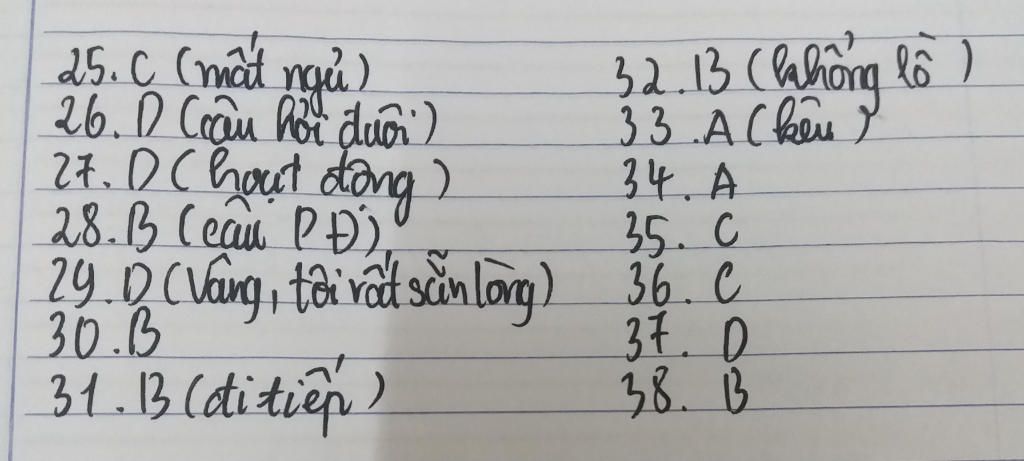 25. C (mất ngủ)
26. D (câu hỏi đuôi)
27. D (hoạt động)
28. B (câu PĐ)
29. D (Vâng, tôi rất sẵn lòng)
30. B
31. B (đi tiếp)
32. B (khổng lồ)
33. A (kêu)
34. A
35. C
36. C
37. D
38. B